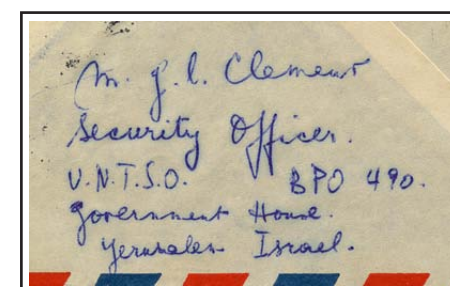 M. J. L. Clement
Security Officer.
U.N.T.S.O. BPO 490.
Government House.
Yerusalem Israel.